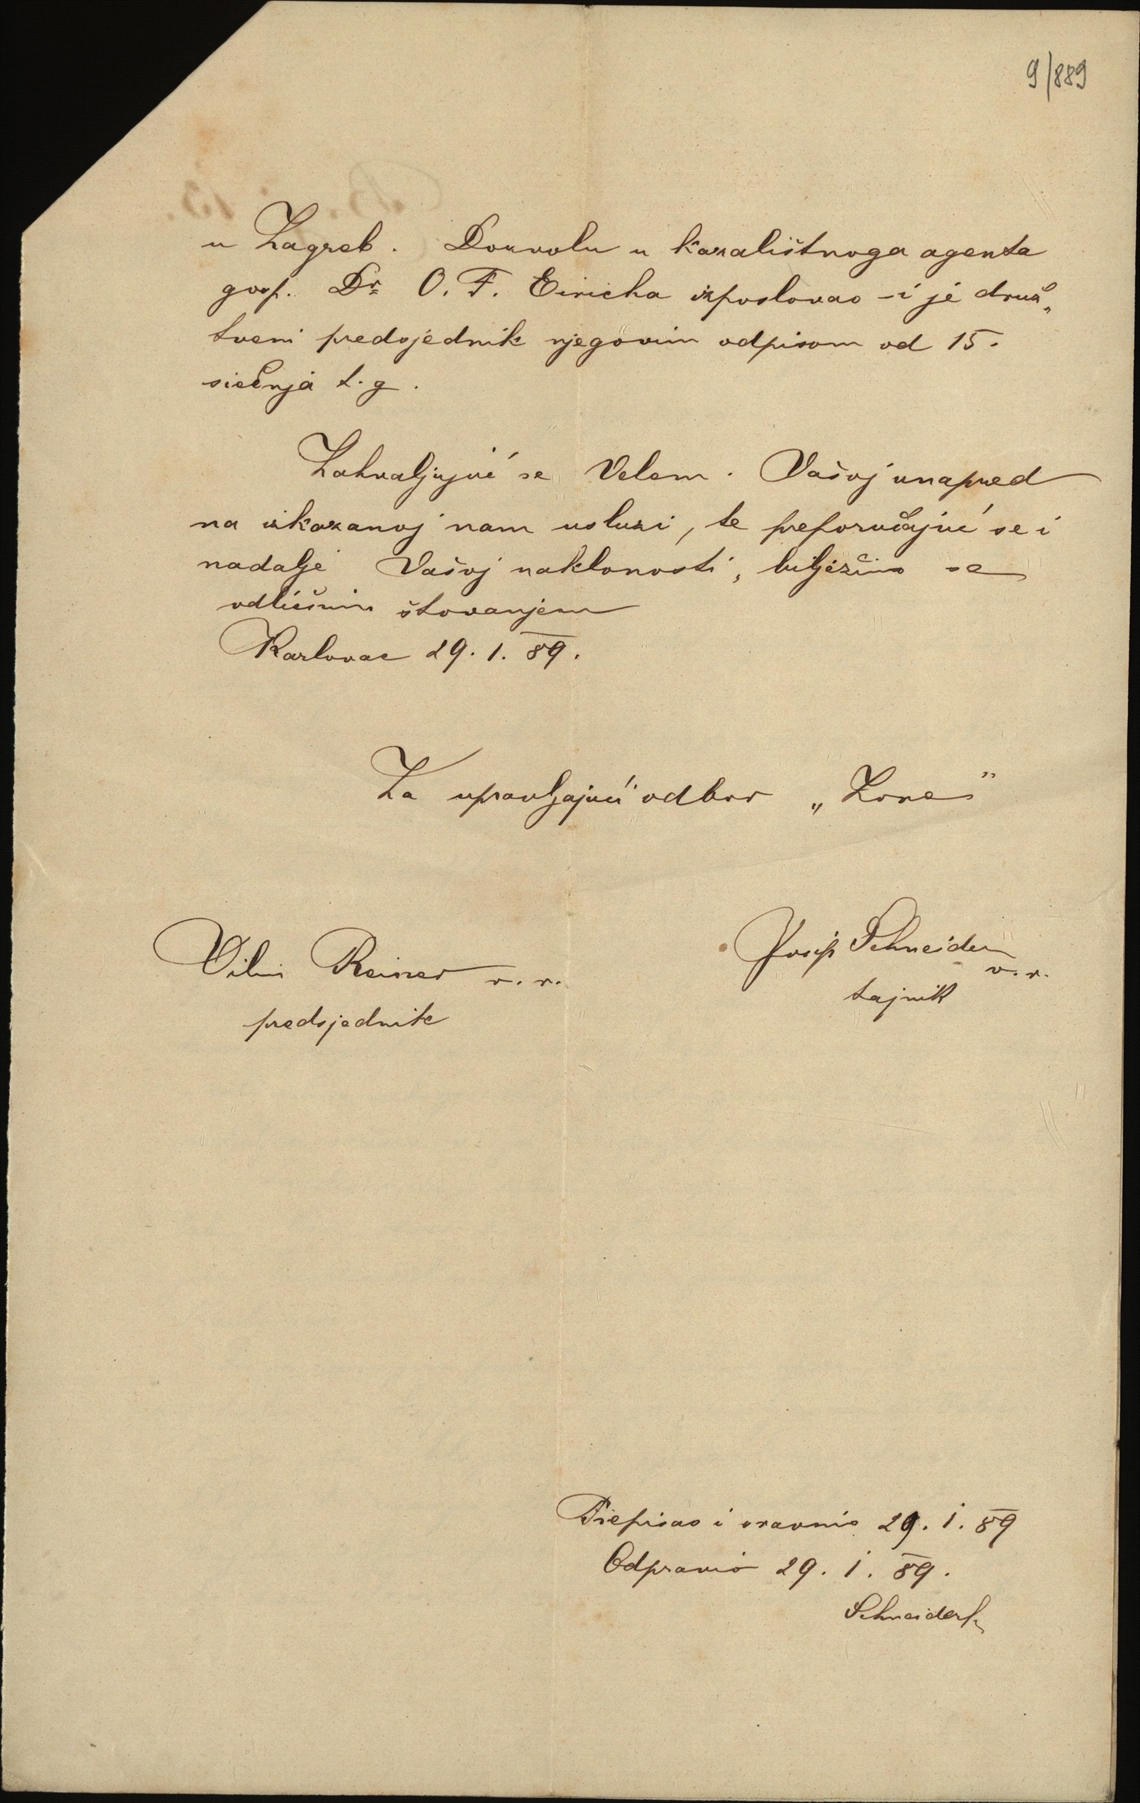 9/889
u Zagreb. Dozvolu u kazalištnoga agenta
gosp. Dr. O. F. Eiricha izposlovao si je druž„
tveni predsjednik njegovim odpisom od 15.
siečnja t. g.
Zahvaljujuć se Velem. Vašoj unapred
na izkazanoj nam usluzi, te preporučajuć se i
nadalje Vašoj naklonosti, biljezimo se
odličnim štovanjem
Karlovac 29. 1. 89.
Za upravljajući odbor „Zore"
Vilim Reiner v. r.
predsjednik
Josip Schneider
v. r.
tajnik
Prepisao i sravnio 29. 1. 89
Odpravio 29. 1. 89.
Schneider